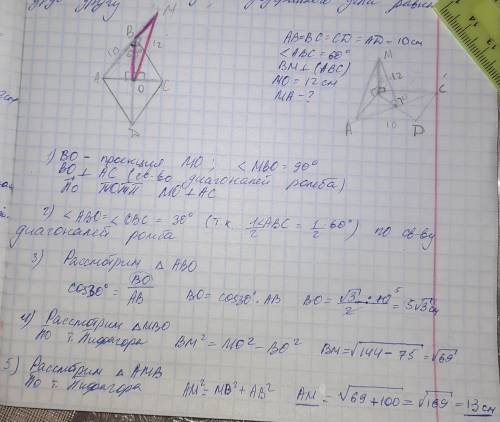 M
B
10
12
A
O
C
D
AB=BC=CD=AD-10см
<ABC=60°
BM⊥(ABC)
MO=12см
MA-?
M
12
C
O
A
10
D
1) BO - проекция MO; <MBO=90°
BO⊥AC (св-во диагоналей ромба)
По ТОТП MO⊥AC
2) <ABO=<CBO=30° (т.к 1/2<ABC=1/2·60°) по св-ву
диагоналей ромба
3) Рассмотрим △ABO
cos30°=BO/AB BO=cos30°·AB BO=√3/2·10=5√3см
4) Рассмотрим △MBO
По т. Пифагора BM²=MO²-BO² BM=√144-75=√69
5) Рассмотрим △AMB
По т. Пифагора AM²=MB²+AB² AM=√69+100=√169=13см